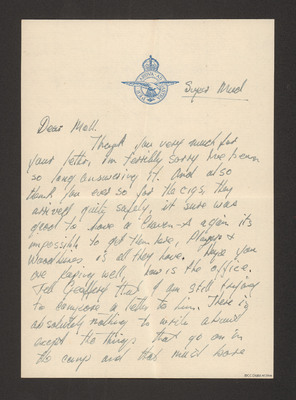 Dear Moll.
Thank you very much for
your letter, I'm terribly sorry I've been
so long answering it. And also
thank you ever so for the cigs, they
arrived quite safely, it sure was
good to have a Craven-A again it's
impossible to get them here, Players &
Woodbines is all they have. Hope you
are keeping well, how is the office.
Tell Geoffrey that I am still trying
to compose a letter to him. There is
absolutely nothing to write about
except the things that go on in
the camp and that would bore